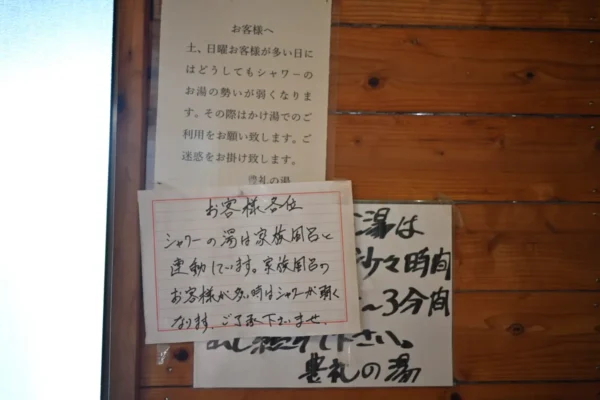 お客様へ
土、日曜お客様が多い日に
はどうしてもシャワーの
お湯の勢いが弱くなりま
す。その際はかけ湯でのご
利用をお願い致します。ご
迷惑をお掛け致します。
豊礼の湯
お客様各位
シャワーの湯は家族風呂と
連動しています。家族風呂の
お客様が多い時はシャワーが弱く
なります。ご了承下さいませ。
湯は
少々時間
〜3分間
出し続けて下さい。
豊礼の湯